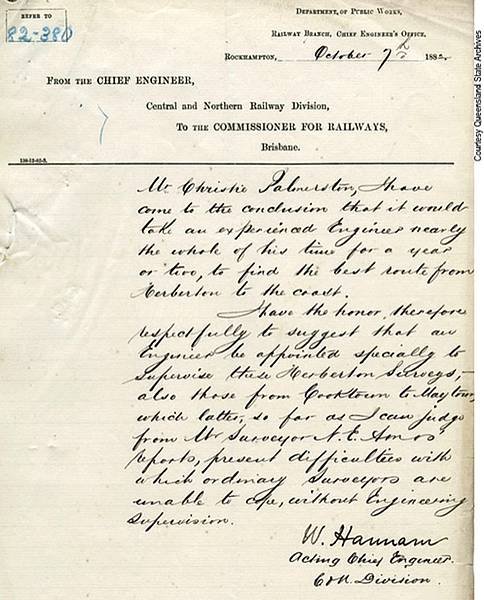 REFER TO
82-380
DEPARTMENT OF PUBLIC WORKS,
RAILWAY BRANCH, CHIEF ENGINEER'S OFFICE,
ROCKHAMPTON, October 7th 1882
FROM THE CHIEF ENGINEER,
Central and Northern Railway Division,
TO THE COMMISSIONER FOR RAILWAYS,
Brisbane.
Mr Christie Palmerston, I have
come to the conclusion that it would
take an experienced Engineer nearly
the whole of his time for a year
or two, to find the best route from
Herberton to the coast.
I have the honor, therefore
respectfully to suggest that an
Engineer be appointed specially to
supervise these Herberton Surveys,-
also those from Cooktown to Maytown
which latter, so far as I can judge
from Mr Surveyor N. E. Amos'
reports, present difficulties with
which ordinary Surveyors are
unable to cope, without Engineering
Supervision.
W. Hannam
Acting Chief Engineer.
C & N. Division.
Courtesy Queensland State Archives